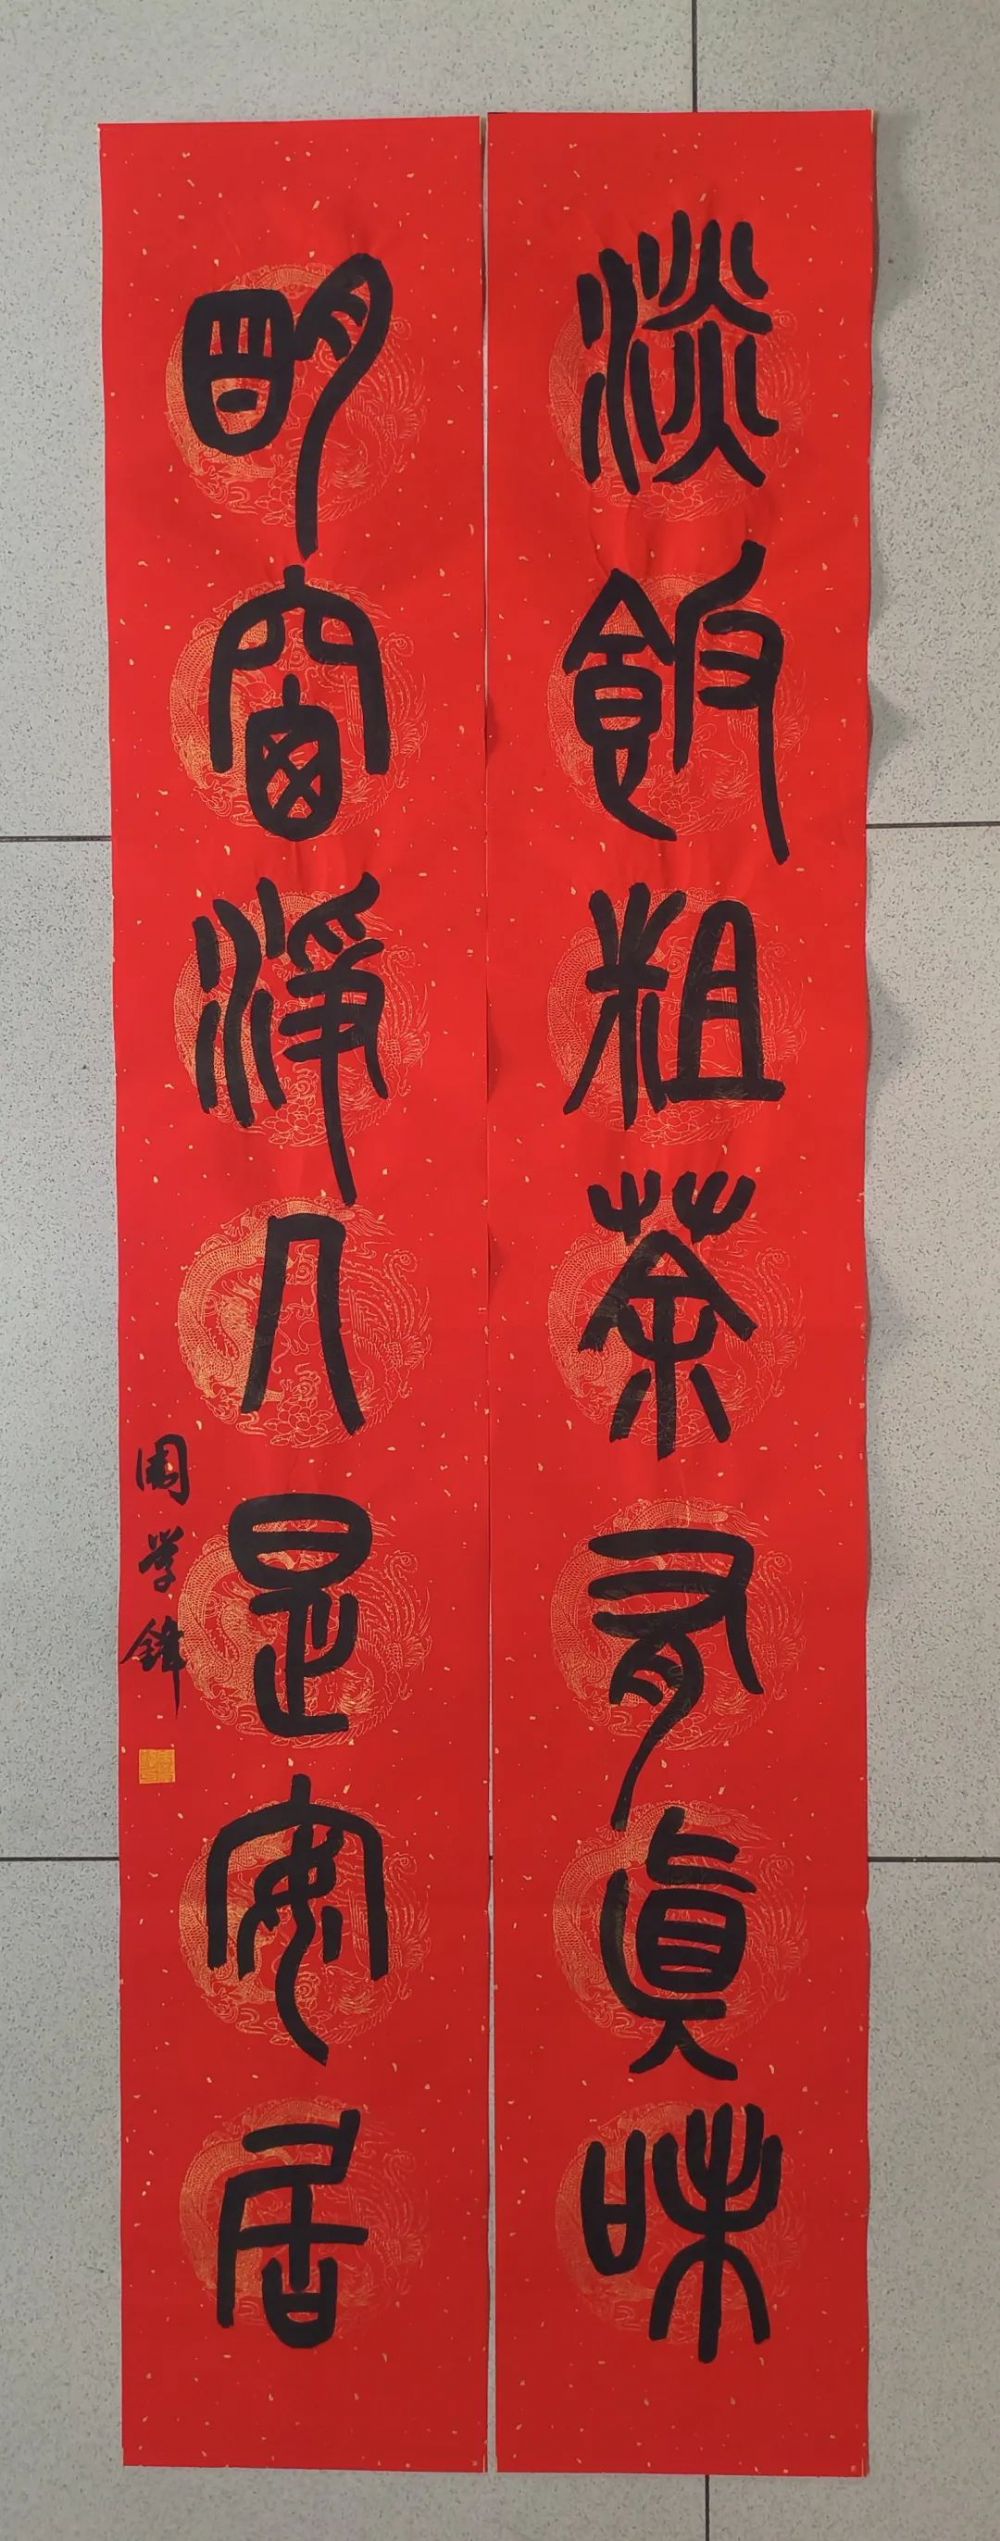 淡飯粗茶有真味
明窗淨几是安居
周学鋒